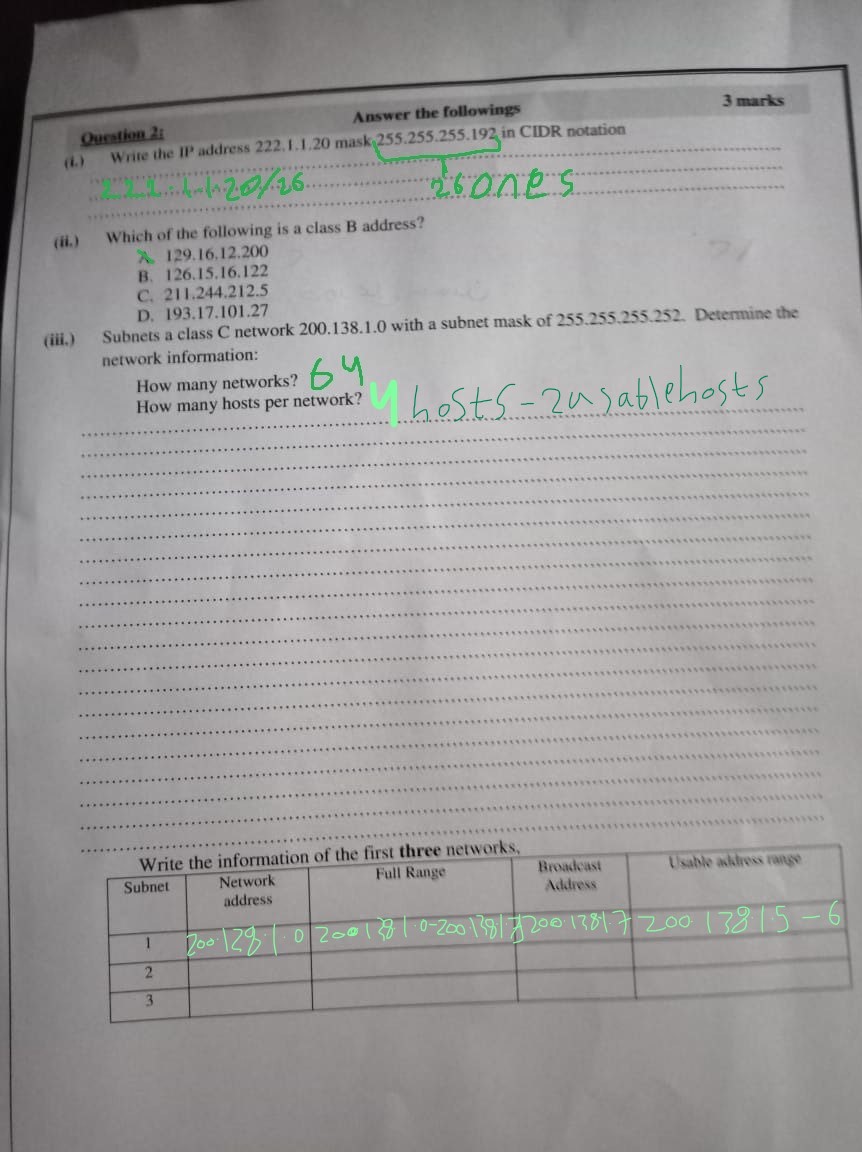 Answer the followings
3 marks
Question 2:
(i.) Write the IP address 222.1.1.20 mask 255.255.255.192 in CIDR notation
222.1.1.20/26
26 ones
(ii.) Which of the following is a class B address?
A. 129.16.12.200
B. 126.15.16.122
C. 211.244.212.5
D. 193.17.101.27
(iii.) Subnets a class C network 200.138.1.0 with a subnet mask of 255.255.255.252. Determine the
network information:
How many networks? 64
How many hosts per network? 4 hosts - 2 usable hosts
Write the information of the first three networks.
Subnet Network address Full Range Broadcast Address Usable address range
1 200.128.1.0 2001381.0-20013817 200.1381.7 20013815-6
2
3